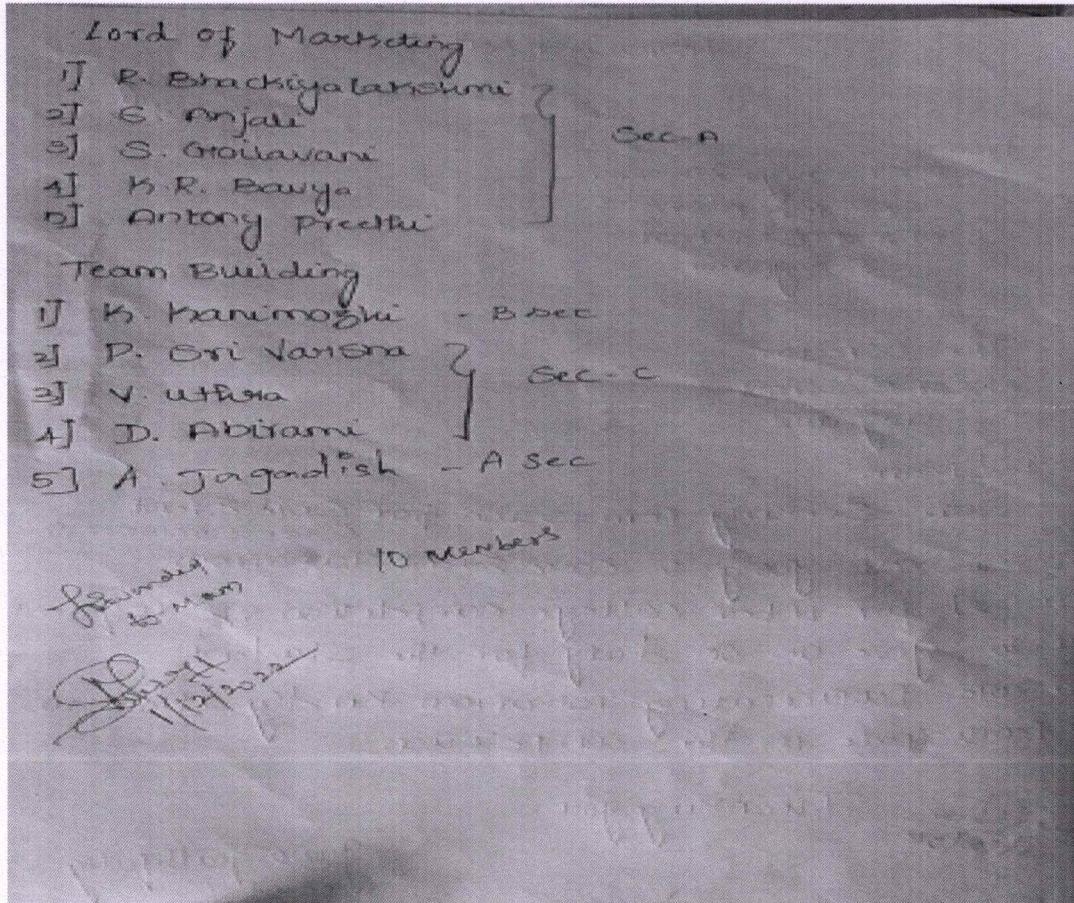 Lord of Marketing
1] R. Bhackiyalakshmi
2] G. Anjali
Sec-A
3] S. Goilavani
4] K.R. Bavya
5] Antony Preethi
Team Building
1] K. Kanimozhi - B sec
2] P. Sri Varsna
Sec - C
3] V. Uthra
4] D. Abirami
5] A. Jagadish - A Sec
10 Members
to Mam
1/12/2022